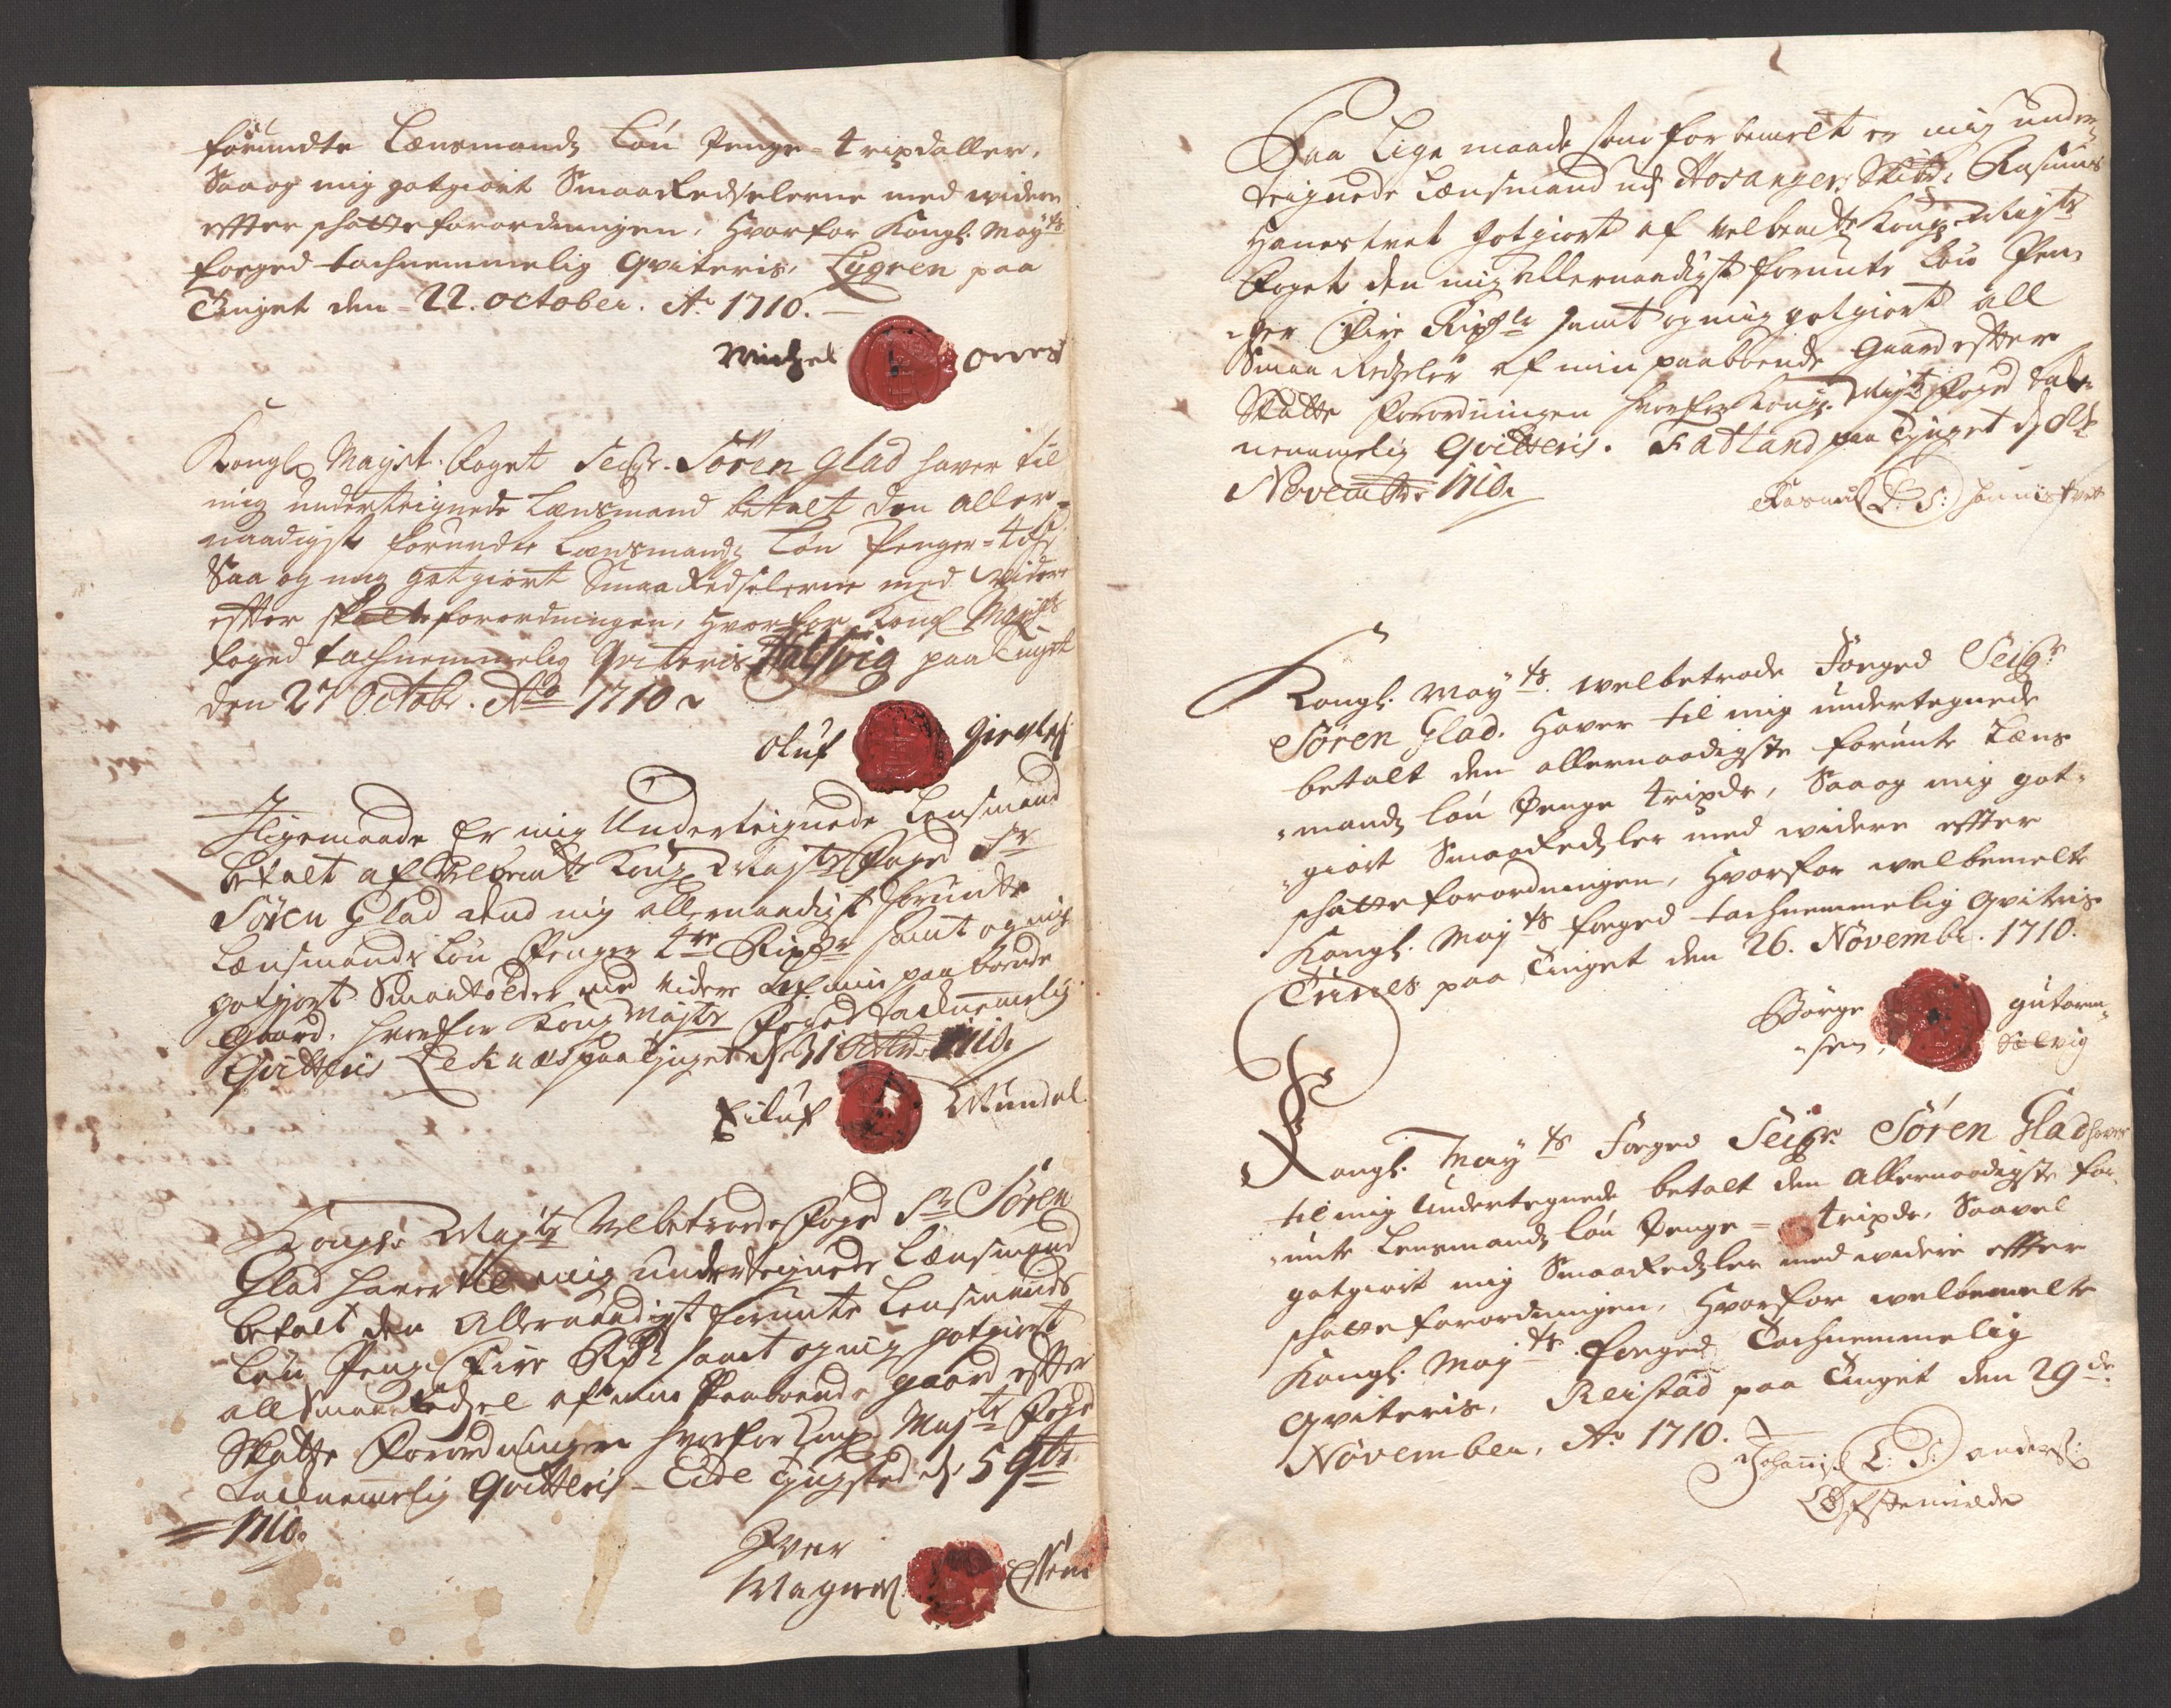 forundte Lænsmands Løn Penge - 4 ripdaller,
Saa og mig gotgiort Smaa Redselerne med widere
effter schatte forordningen, Hvorfor Kongl: May:ts
foeged tachnemmelig Qviteris, Lygren paa
Tinget den 22. october. Ao 1710.
Michel
Kongl Mayst: Foget Seigr. Sørin Glad haver til
mig underteignede Lænsmand betalt den aller-
naadigst forundte Lænsmands Løn Penger = 4
Saa og mig gotgiort Smaa Redselerne med Widere
effter skatte forordningen, Hvorfor Kongl Mayts
foged tachnemmelig Qviteris Halsvig paa Tinget
den 27 Octobr. Ao 1710
Oluf
Iligemaade Er mig Underteignede Lensmand
betalt af Velbemte Kong Mayts Foged Sr
Søren Glad dend mig allernaadigst forundte
Lænsmands Løn Penger 4re Ripdr samt og mig
gotgiort Smaa med Videre af min paaboende
Gaard, hvorfor Kong Mayts Foged tacknemmelig
Qvitteris Leknæs paa Tinget d 31 Octbr 1710
Eiluf Mundal
Kongl: Mayts Velbetroede Foged Sr Søren
Glad haver til mig underteignede Lænsmand
betalt den Allernaadigst forunte Lensmands
Løn Penge Fire Rdr samt og mig gotgiort
all Smaa Redsel af min Paaboende gaard effter
Skatte Forordningen hvorfor Kong Mayts Foged
tacknemmelig Qvitteris - Eide Tingsted d: 5 9br
1710.
Iver
Magnes
Paa Lige maade som forbemelt er mig under
teignede Lænsmand udj Hosanger Skibr: Rasmus
Hanestvet gotgiort af Velbemte Kong Mayts
Foget den mig Allernaadigst forunte Løn Pen-
ger Fire Ripdlr samt og mig gotgiort all
Smaa Redseler af min paaboende Gaard effter
Skatte Forordningen hvorfor Kong: Mayts Foged tak-
nemmelig Qvitteris. Fatland paa Tinget d
Novembr 1710.
Rasmus L: S: Hannistvet
Kongl: May:ts welbetrode Foeged Seigr
Søren Glad. Haver til mig undertegnede
betalt den allernaadigste forunte Læns
mands løn Penge 4 ripdr, Saa og mig got-
giort Smaa Redsler med widere effter
schatte forordningen, Hvorfor welbemelte
Kongl: May:ts foeged tachnemmelig qvitris
Trines paa Tinget den 26. Novembr. 1710.
Børge gutorm-
sen, Sælvig
Kongl: May:ts Foeged Seigr Søren Glad haver
til mig Undertegnede betalt den Allernaadigste for
unte Lensmands løn Penge = 4 ripdr, Saavel
gotgiort mig Smaa Redsler med widere effter
schatte forordningen, Hvorfor welbemelte
Kongl: May:ts foeged Tachnemmelig
Qviteris, Reistad paa Tinget den 29de
November, Ao 1710.
Johannis L: S: anders: